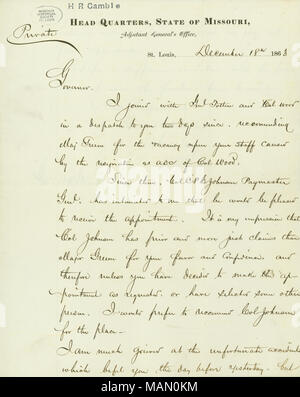 H R Gamble
MISSOURI HISTORICAL SOCIETY ST. LOUIS
HEAD QUARTERS, STATE OF MISSOURI,
Private
Adjutant General's Office,
St. Louis, December 18th 1863
Governor
I joined with Genl Totten and Col Wood
in a dispatch to you two days since, recommending
Maj Green for the vacancy upon your staff caused
by the resignation as ADC of Col Wood.
Since then, Col W D Johnson Paymaster
Genl. has intimated to me that he would be pleased
to receive the appointment. It is my impression that
Col Johnson has prior and more just claims than
Major Green for your favor and confidence. and
therefore unless you have decided to make the ap-
pointment as requested, or have selected some other
person. I would prefer to recommend Col Johnson
for the place—
I am much grieved at the unfortunate accident
which befel you, the day before yesterday. but
alamy
alamy stock photo
MAN0KM